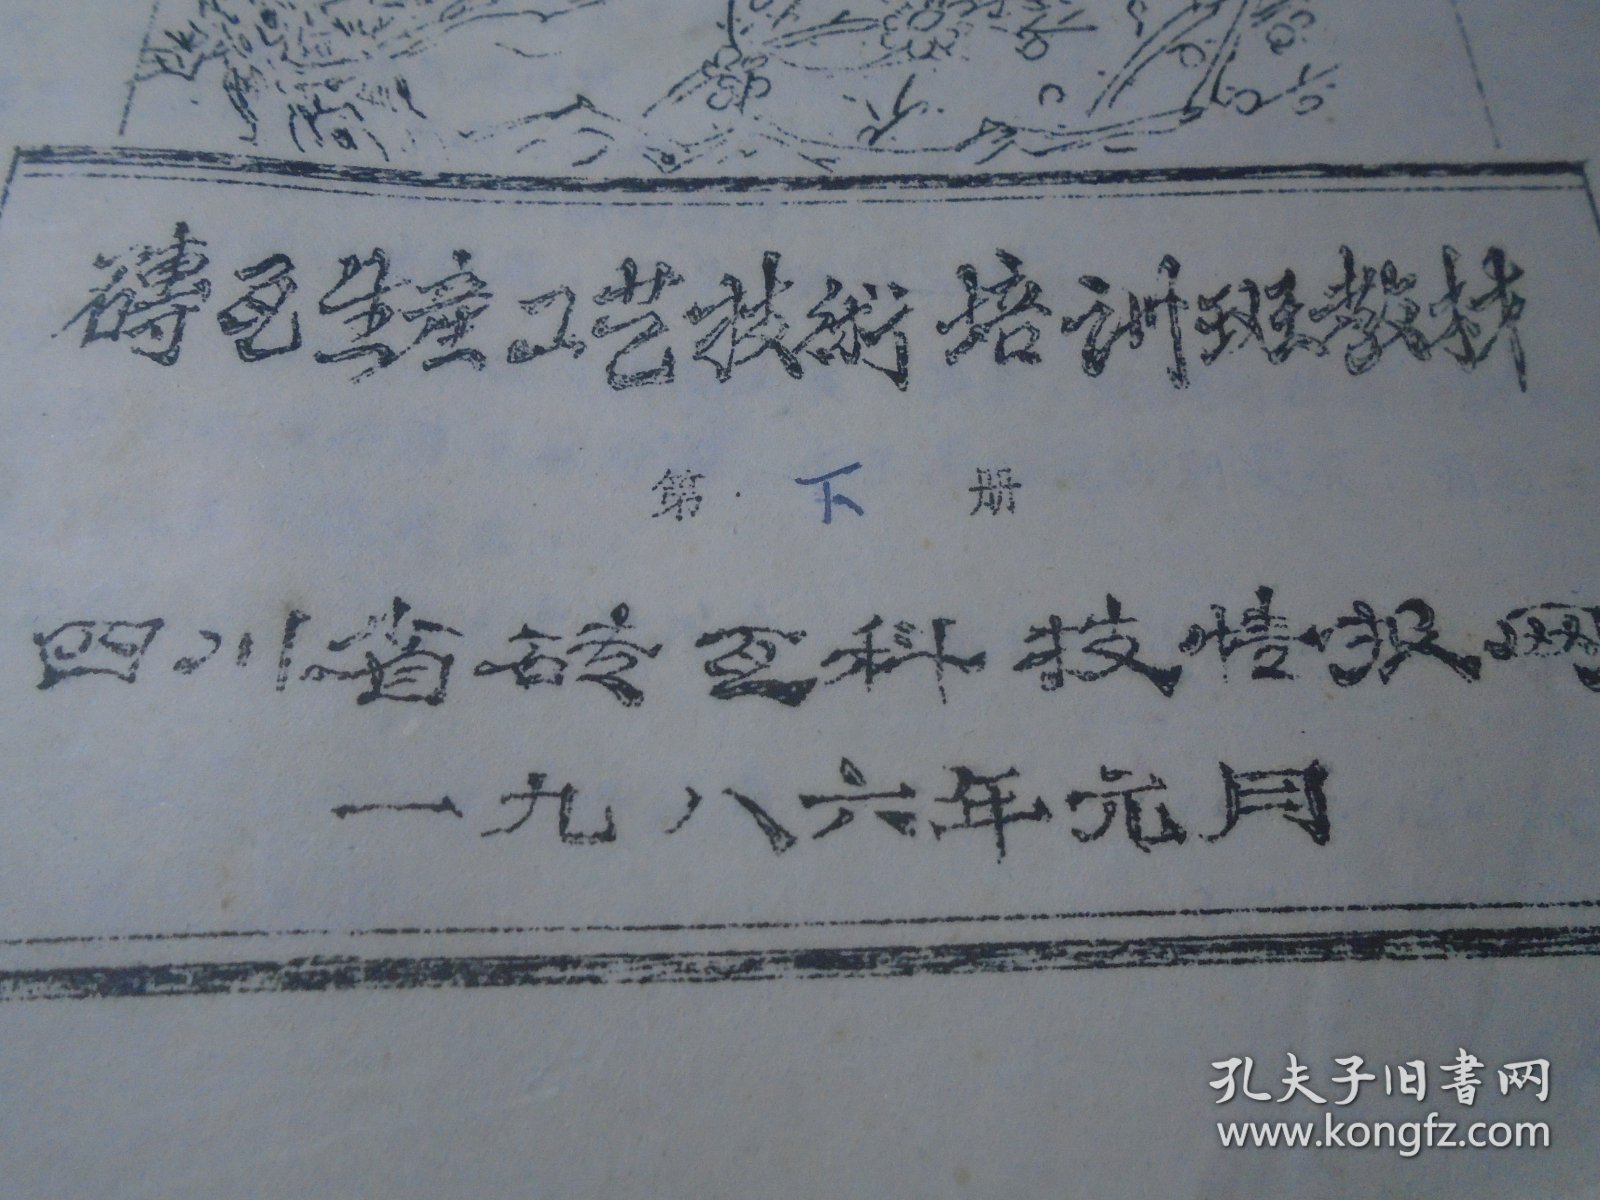 磚瓦生産工艺技術培训班教材
第下册
四川省砖瓦科技情报网
一九八六年元月
孔夫子旧書网
www.kongfz.com